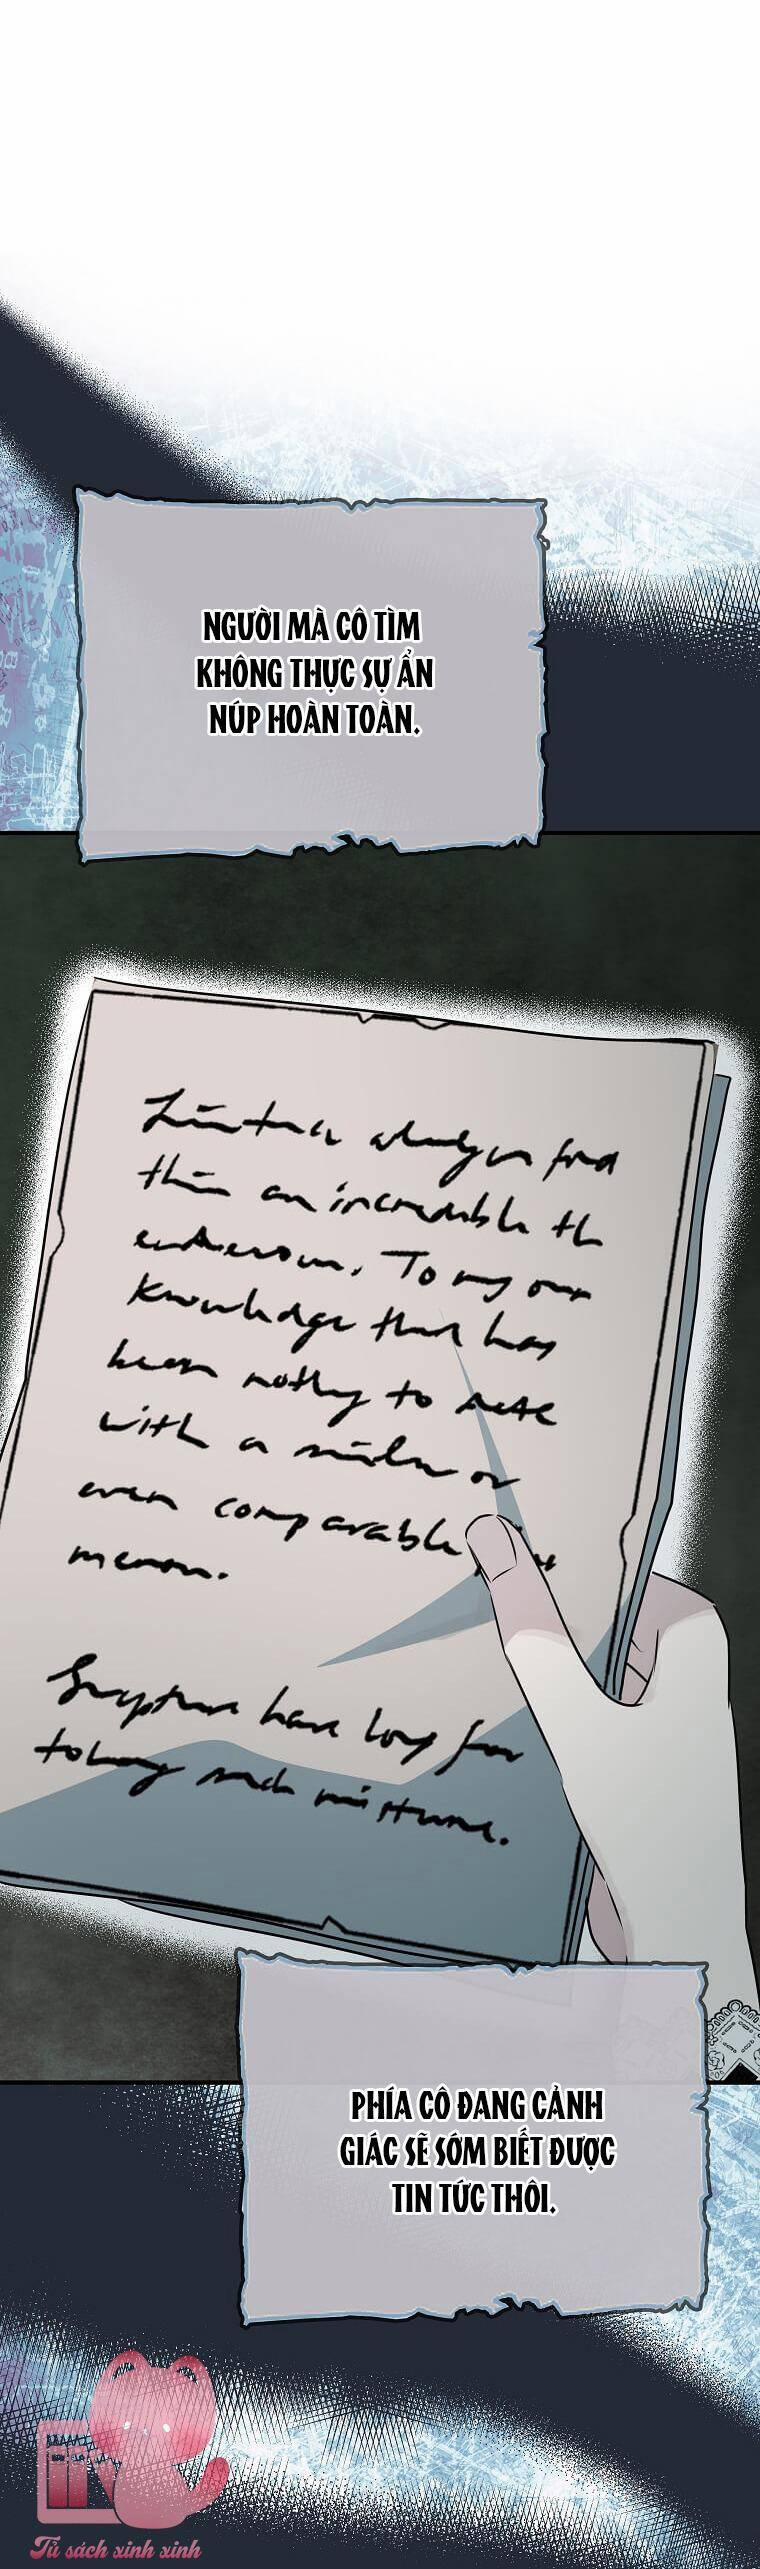 NGƯỜI MÀ CÔ TÌM
KHÔNG THỰC SỰ ẨN
NÚP HOÀN TOÀN.
find
this an incredible th
To my own
knowledge that has
been nothing to date
with a similar or
even comparable
have long
such mixture.
PHÍA CÔ ĐANG CẢNH
GIÁC SẼ SỚM BIẾT ĐƯỢC
TIN TỨC THÔI.
Tủ sách xinh xinh